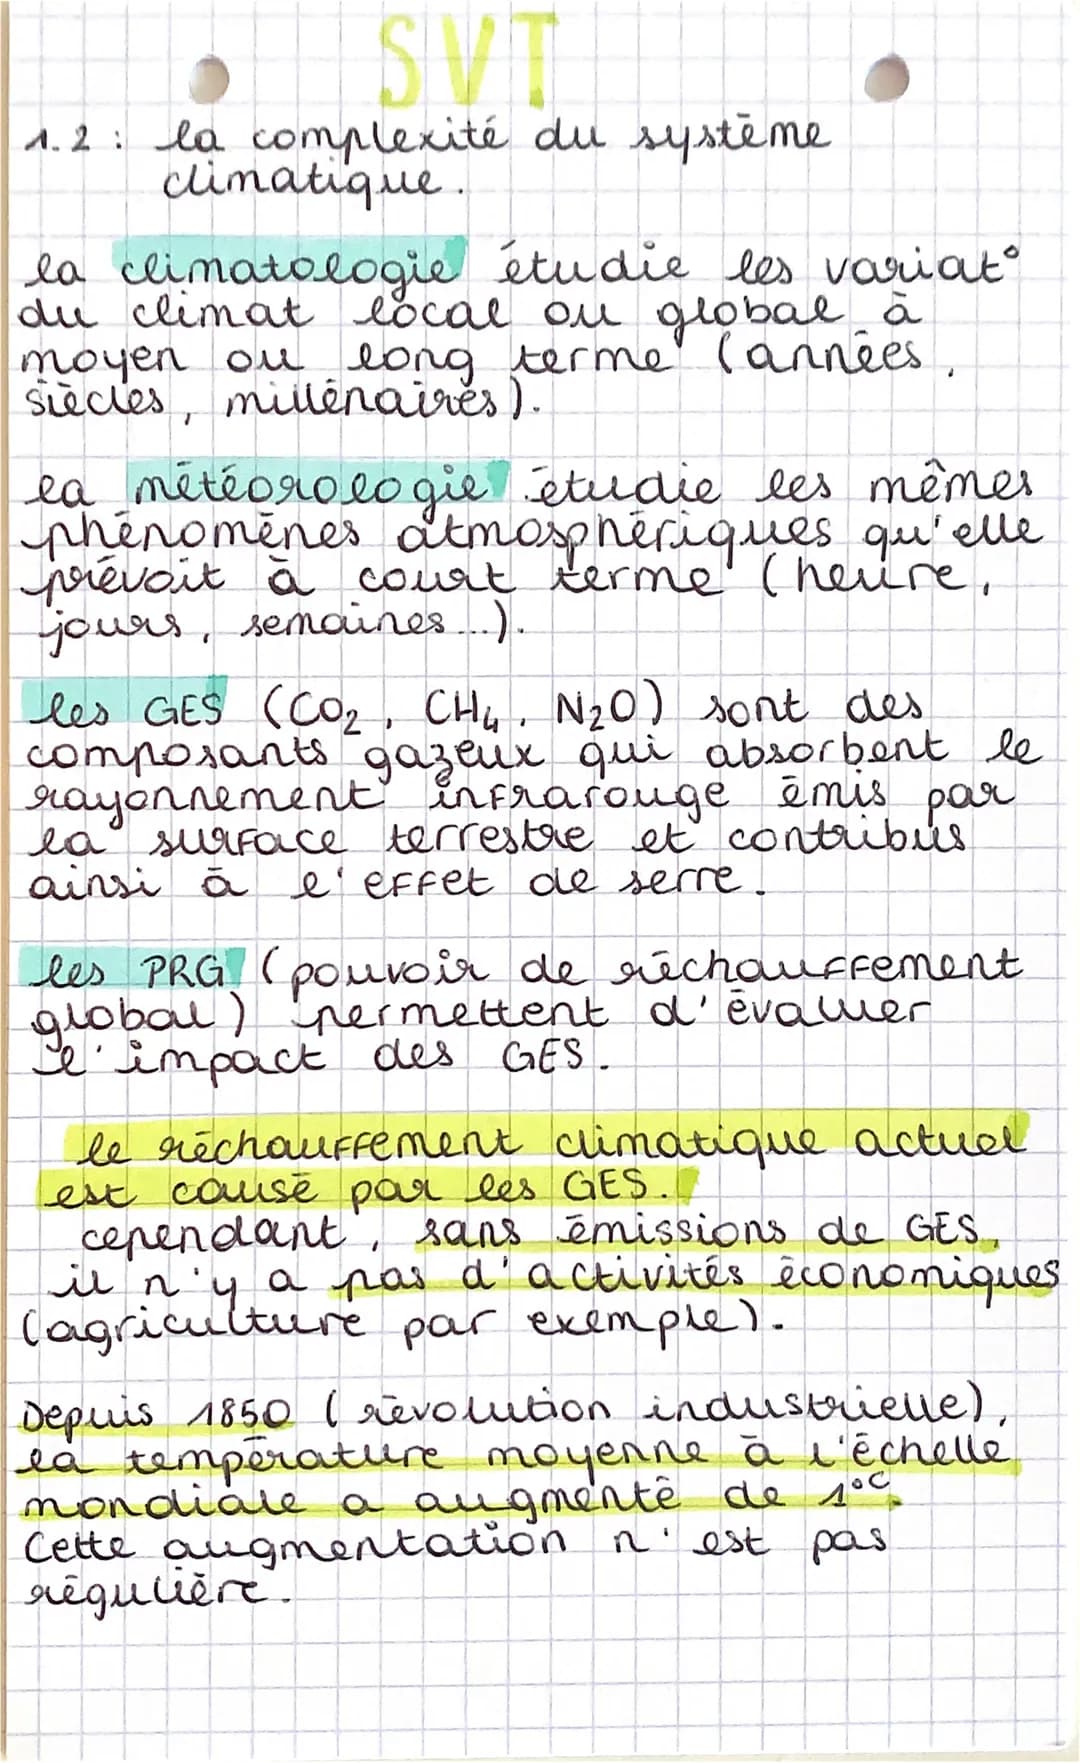 SVT
1.2 : la complexité du système
climatique.
la climatologie étudie les variat°
du climat local ou global à
moyen ou long terme (années,
siècles, millénaires).
la météorologie étudie les mêmes
phénomènes atmosphériques qu'elle
prévoit à court terme (heure,
jours, semaines...).
les GES (CO₂, CH₄, N₂O) sont des
composants gazeux qui absorbent le
rayonnement infrarouge émis par
la surface terrestre et contribus
ainsi à l'effet de serre.
les PRG (pouvoir de réchauffement
global) permettent d'évaluer
l'impact des GES.
le réchauffement climatique actuel
est causé par les GES.
cependant, sans émissions de GES,
il n'y a pas d'activités économiques
(agriculture par exemple).
Depuis 1850 (révolution industrielle),
la température moyenne à l'échelle
mondiale a augmenté de 1°C.
Cette augmentation n'est pas
régulière.